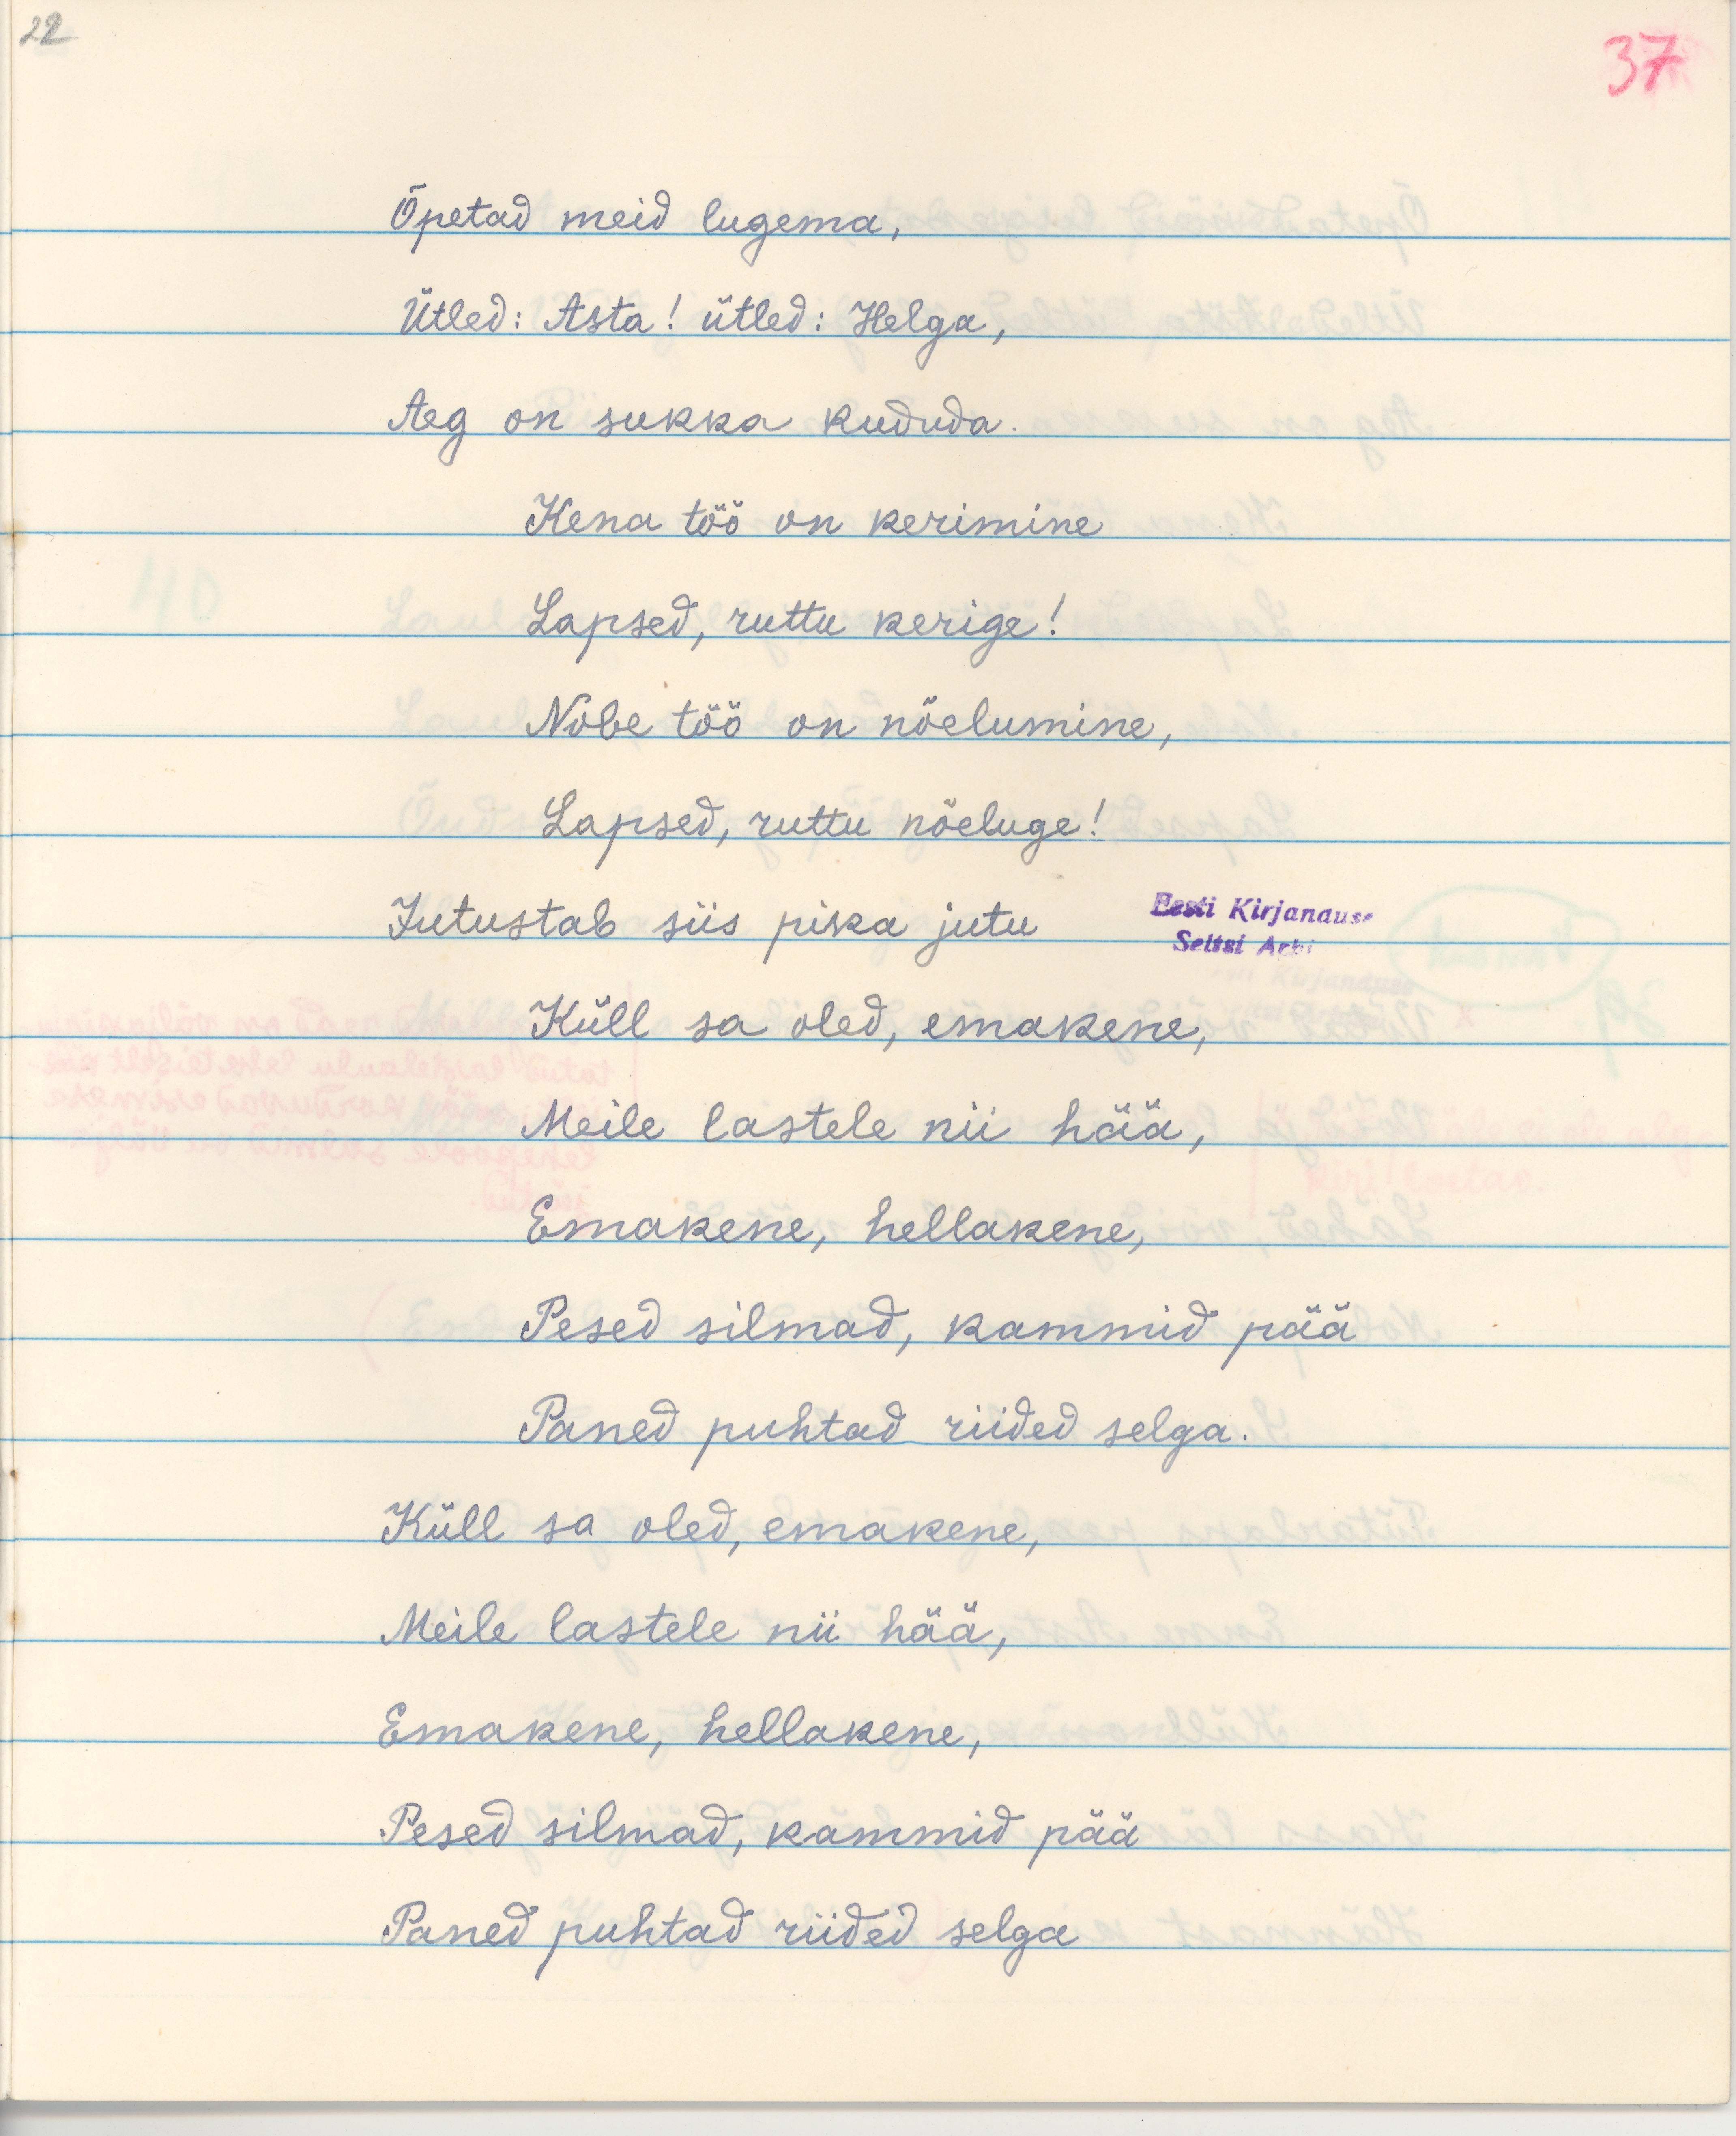 22
37
Õpetad meid lugema,
Ütled: Asta! ütled: Helga,
Aeg on sukka kududa.
Kena töö on kerimine
Lapsed, ruttu kerige!
Nobe töö on nõelumine,
Lapsed, ruttu nõeluge!
Jutustab siis pika jutu
Eesti Kirjanduse
Seltsi
Küll sa oled, emakene,
Meile lastele nii hää,
Emakene, hellakene,
Pesed silmad, kammid pää
Paned puhtad riided selga.
Küll sa oled, emakene,
Meile lastele nii hää,
Emakene, hellakene,
Pesed silmad, kammid pää
Paned puhtad riided selga